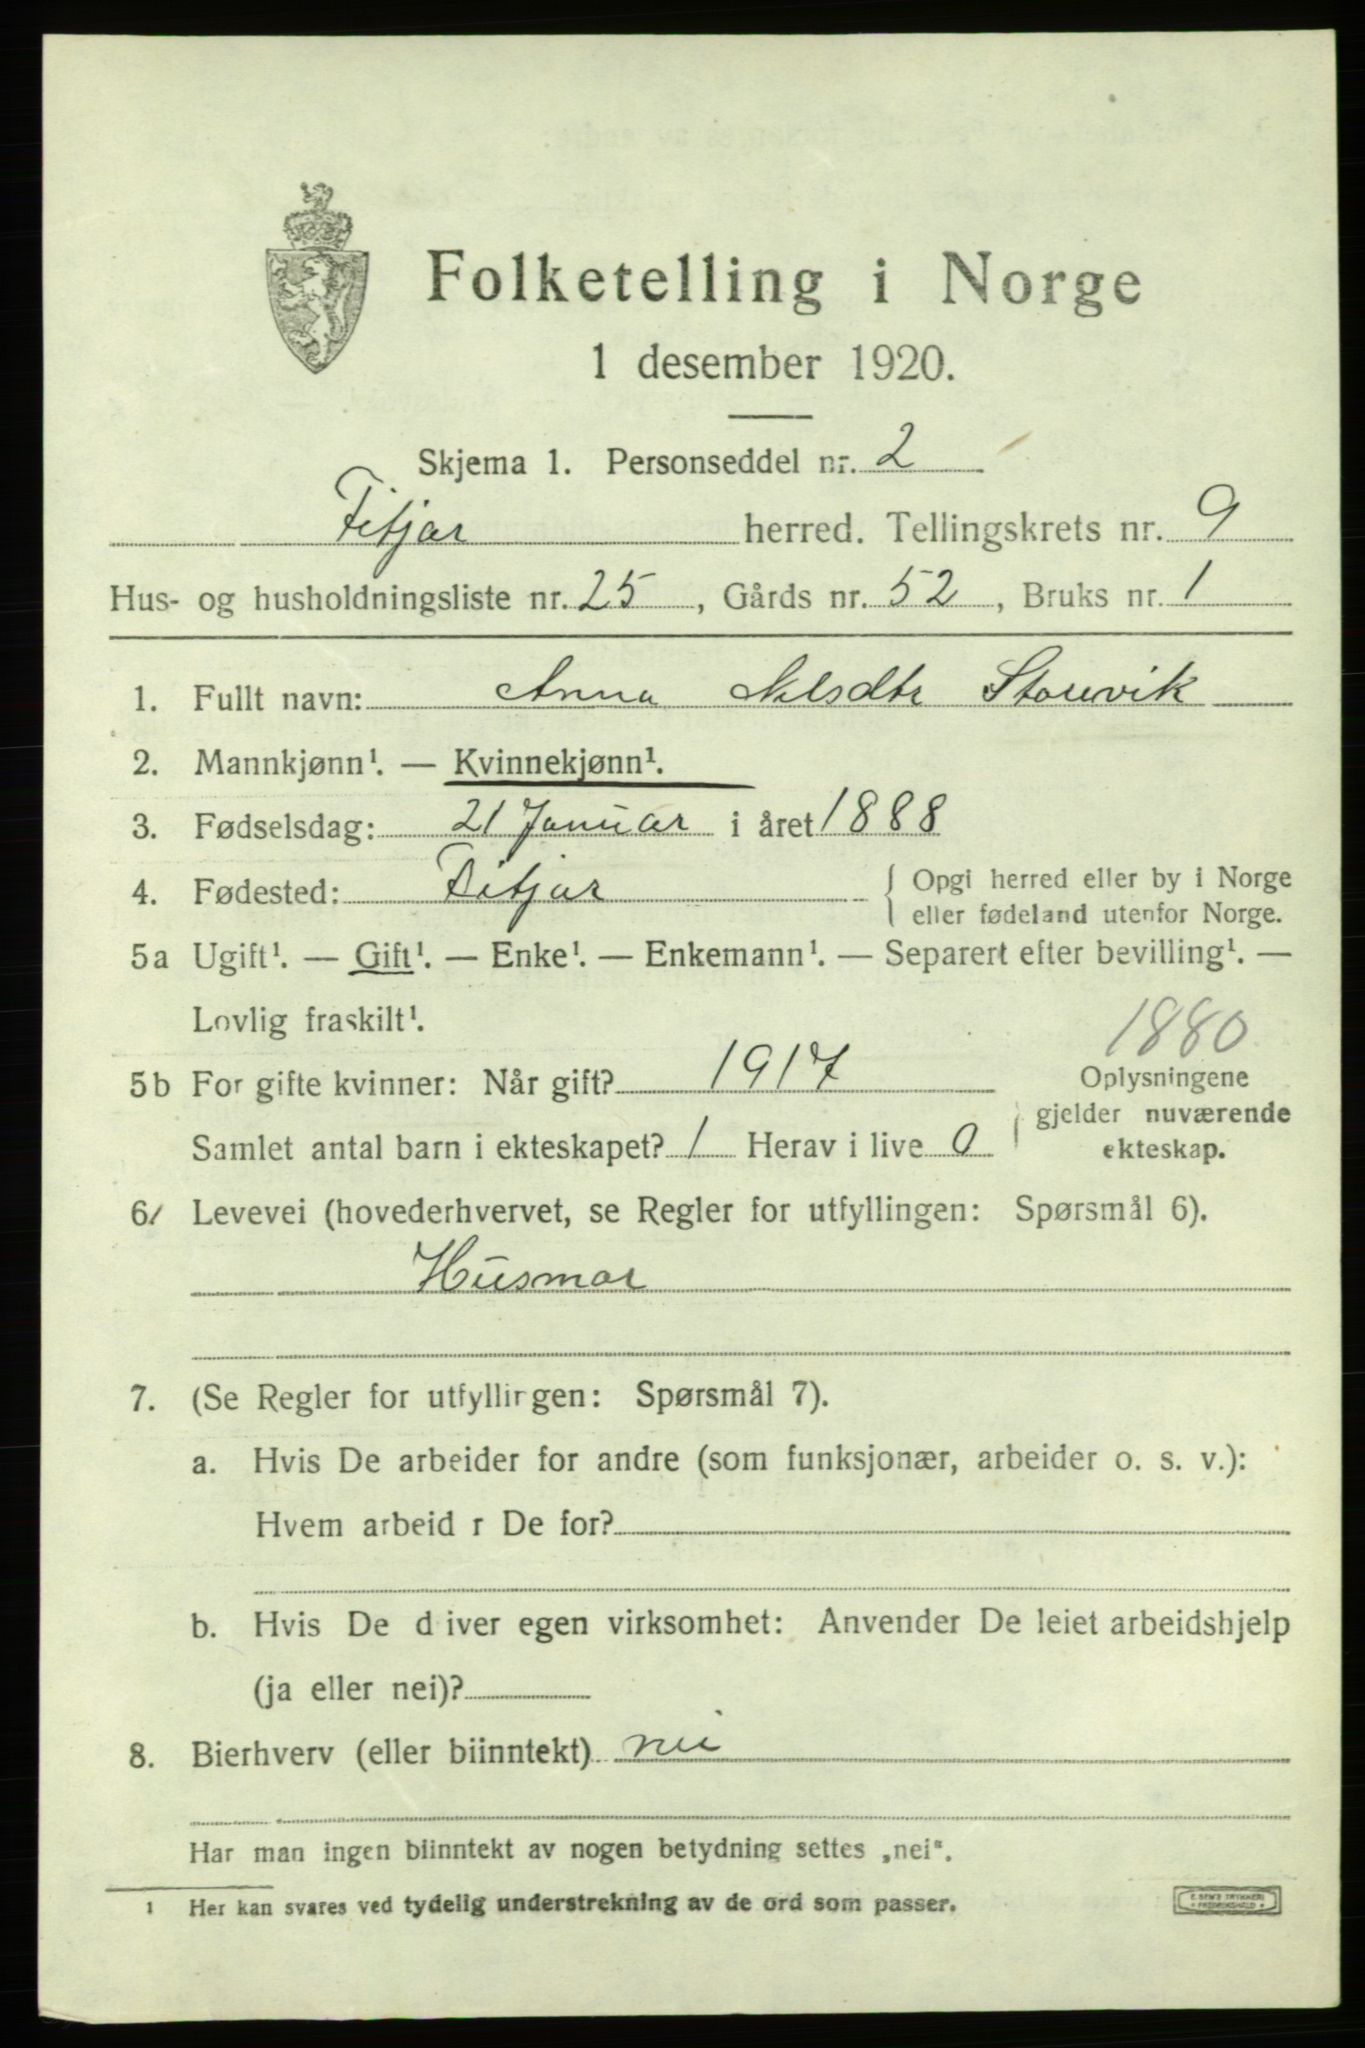 Folketelling i Norge
1 desember 1920.
Skjema 1. Personseddel nr. 2
Fitjar herred. Tellingskrets nr. 9
Hus- og husholdningsliste nr. 25, Gårds nr. 52, Bruks nr. 1
1. Fullt navn: Anna Nilsdtr Storevik
2. Mannkjønn¹. — Kvinnekjønn¹.
3. Fødselsdag: 21 Januar i året 1888
4. Fødested: Fitjar { Opgi herred eller by i Norge
eller fødeland utenfor Norge.
5a Ugift¹. — Gift¹. — Enke¹. — Enkemann¹. — Separert efter bevilling¹. —
Lovlig fraskilt¹.
1880
5b For gifte kvinner: Når gift? 1917 Oplysningene
gjelder nuværende
Samlet antal barn i ekteskapet? 1 Herav i live 0 ekteskap.
6/ Levevei (hovederhvervet, se Regler for utfyllingen: Spørsmål 6).
Husmor
7. (Se Regler for utfyllingen: Spørsmål 7).
a. Hvis De arbeider for andre (som funksjonær, arbeider o. s. v.):
Hvem arbeid r De for?
b. Hvis De d iver egen virksomhet: Anvender De leiet arbeidshjelp
(ja eller nei)?
8. Bierhverv (eller biinntekt) nei
Har man ingen biinntekt av nogen betydning settes „nei“.
1 Her kan svares ved tydelig understrekning av de ord som passer.